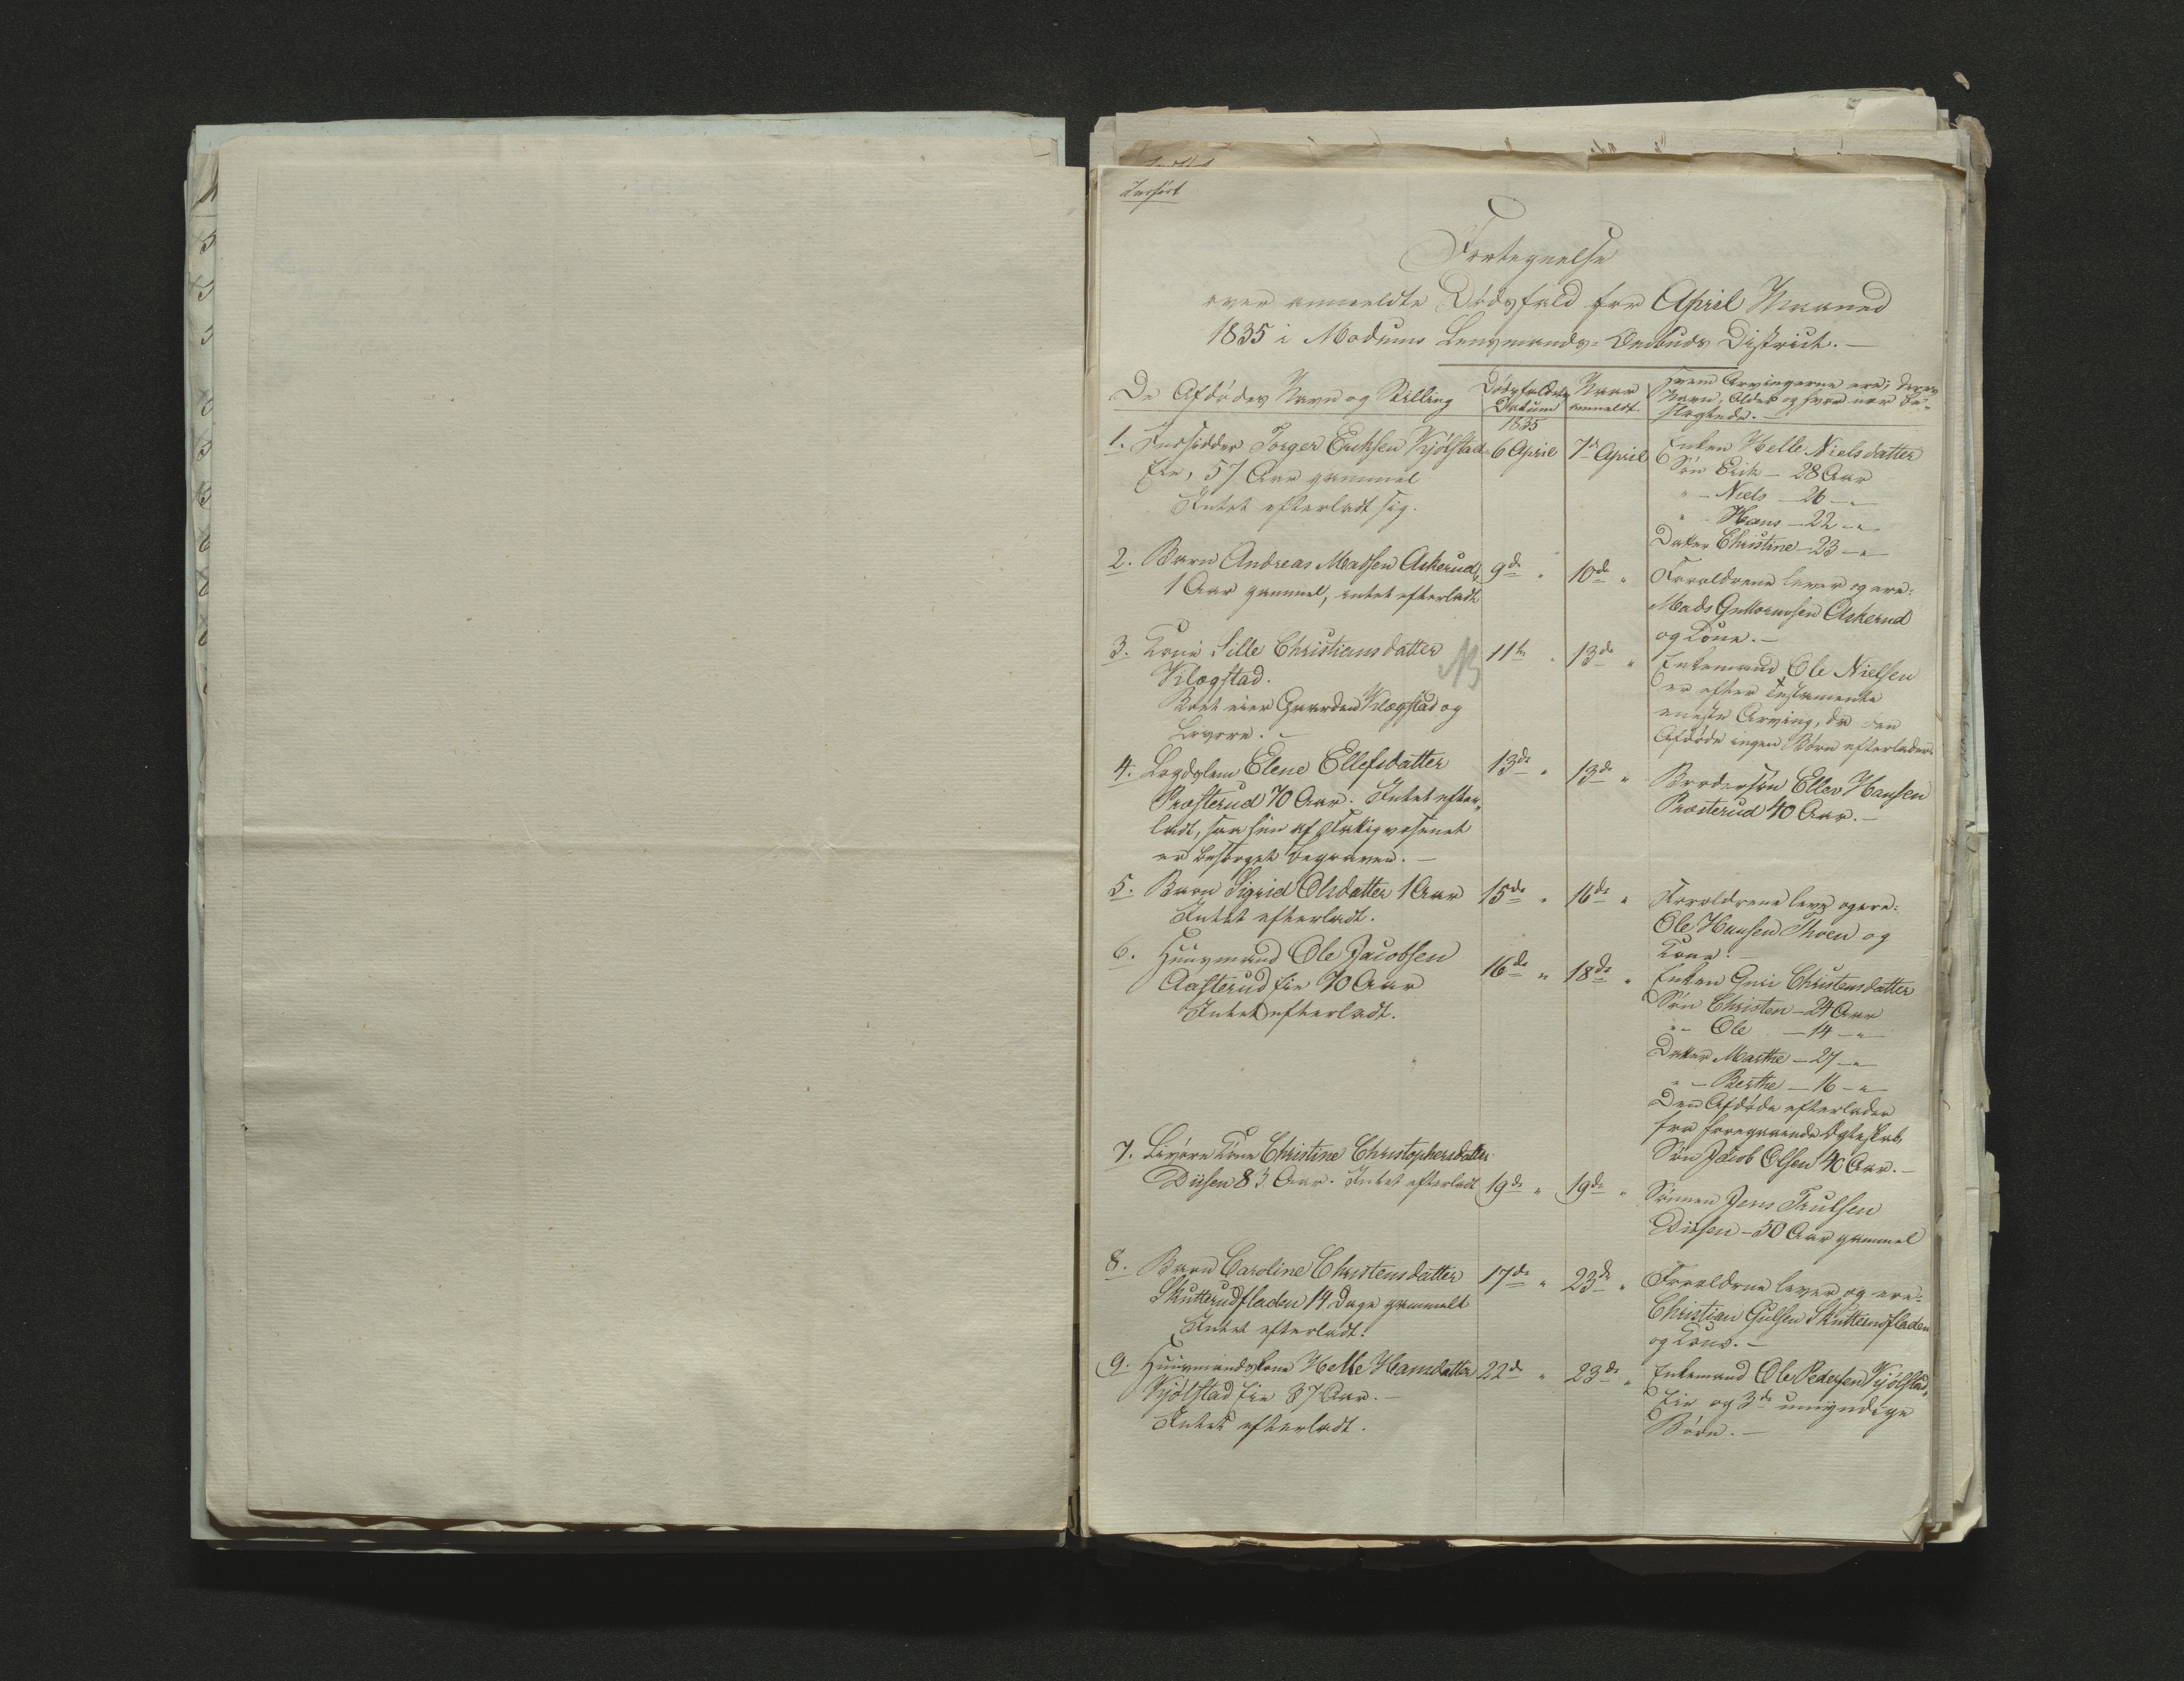 Indført
Fortegnelse
over anmeldte Dødsfald for April Maaned
1835 i Modums Lensmands-Ombuds District.—
De Afdødes Navn og Stilling
Dødsfaldets Datum
Naar anmeldt.
Hvem Arvingerne ere; deres
Navn, Alder og hvor nær be-
slægtede.—
1835
1. Indsidder Torger Erichsen Kjølstad
Eie, 57 Aar gammel
Intet efterladt sig.
6 April
7de April
Enken Helle Nielsdatter
Søn Erik — 28 Aar
" — Niels — 26 — "
" — Hans — 22 — "
Datter Christine — 23 — "
2. Barn Andreas Madsen Askerud,
1 Aar gammel, intet efterladt
9de "
10de "
Forældrene lever og ere:
Mads Guttormsen Askerud
og Kone.—
3. Kone Sille Christiansdatter
Klægstad.
Boet eier Gaarden Klægstad og
Løsøre.—
NB
11te "
13de "
Enkemand Ole Nielsen
er efter Testamente
eneste Arving, da den
Afdøde ingen Børn efterlader.
4. Lægdslem Elene Ellefsdatter
Præsterud 70 Aar. Intet efter-
ladt, saa hun af Fattigvæsenet
er besørget begraven.—
13de "
13de "
Brodersøn Ellev Hansen
Præsterud 40 Aar.—
5. Barn Sigrid Olsdatter 1 Aar
Intet efterladt.
15de "
16de "
Forældrene leve og ere:
Ole Hansen Thoen og
Kone.—
6. Huusmand Ole Jacobsen
Aasterud Eie 70 Aar
Intet efterladt.
16de "
18de "
Enken Guri Christensdatter
Søn Christen — 24 Aar
" — Ole — 14 — "
Datter Marthe — 27 — "
" — Berthe — 16 — "
Den Afdøde efterlader
fra foregaaende Ægteskab,
Søn Jacob Olsen 40 Aar.—
7. Kone Christine Christophersdatter
Diisen 83 Aar. Intet efterladt
19de "
19de "
Sønnen Jens Trulsen
Diisen — 50 Aar gammel
8. Barn Caroline Christensdatter
Skutterudfladen 14 Dage gammelt
Intet efterladt.
17de "
23de "
Forældrene lever og ere:
Christian Gulsen Skutterudfladen
og Kone.—
9. Huusmandskone Helle Hansdatter
Kjølstad Eie 37 Aar.—
Intet efterladt.
22de "
23de "
Enkemand Ole Pedersen Kjølstad-
Eie og 3de umyndige
Børn.—